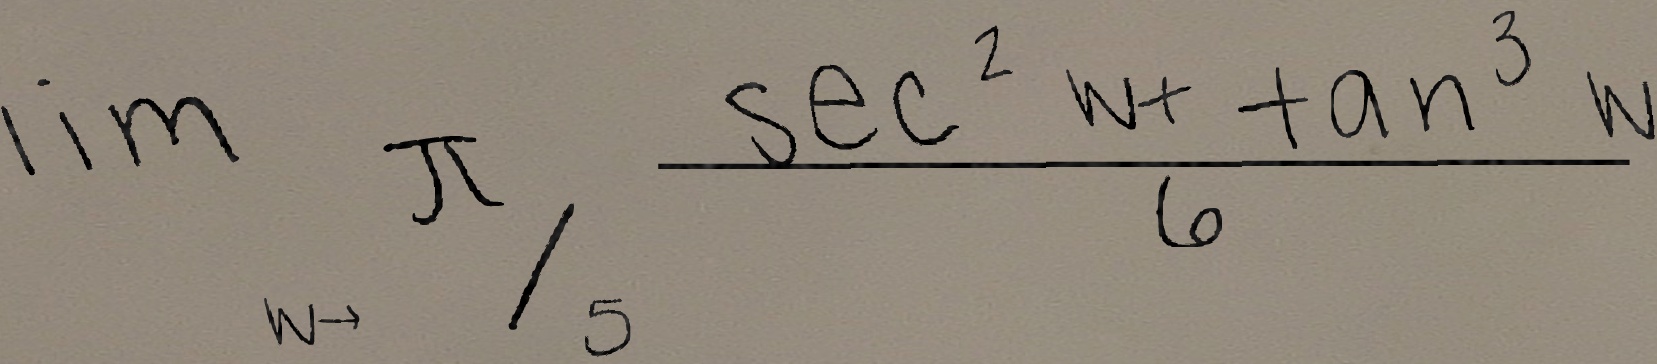 \lim_{w \to \pi/5} \frac{\sec^2 w + \tan^3 w}{6}